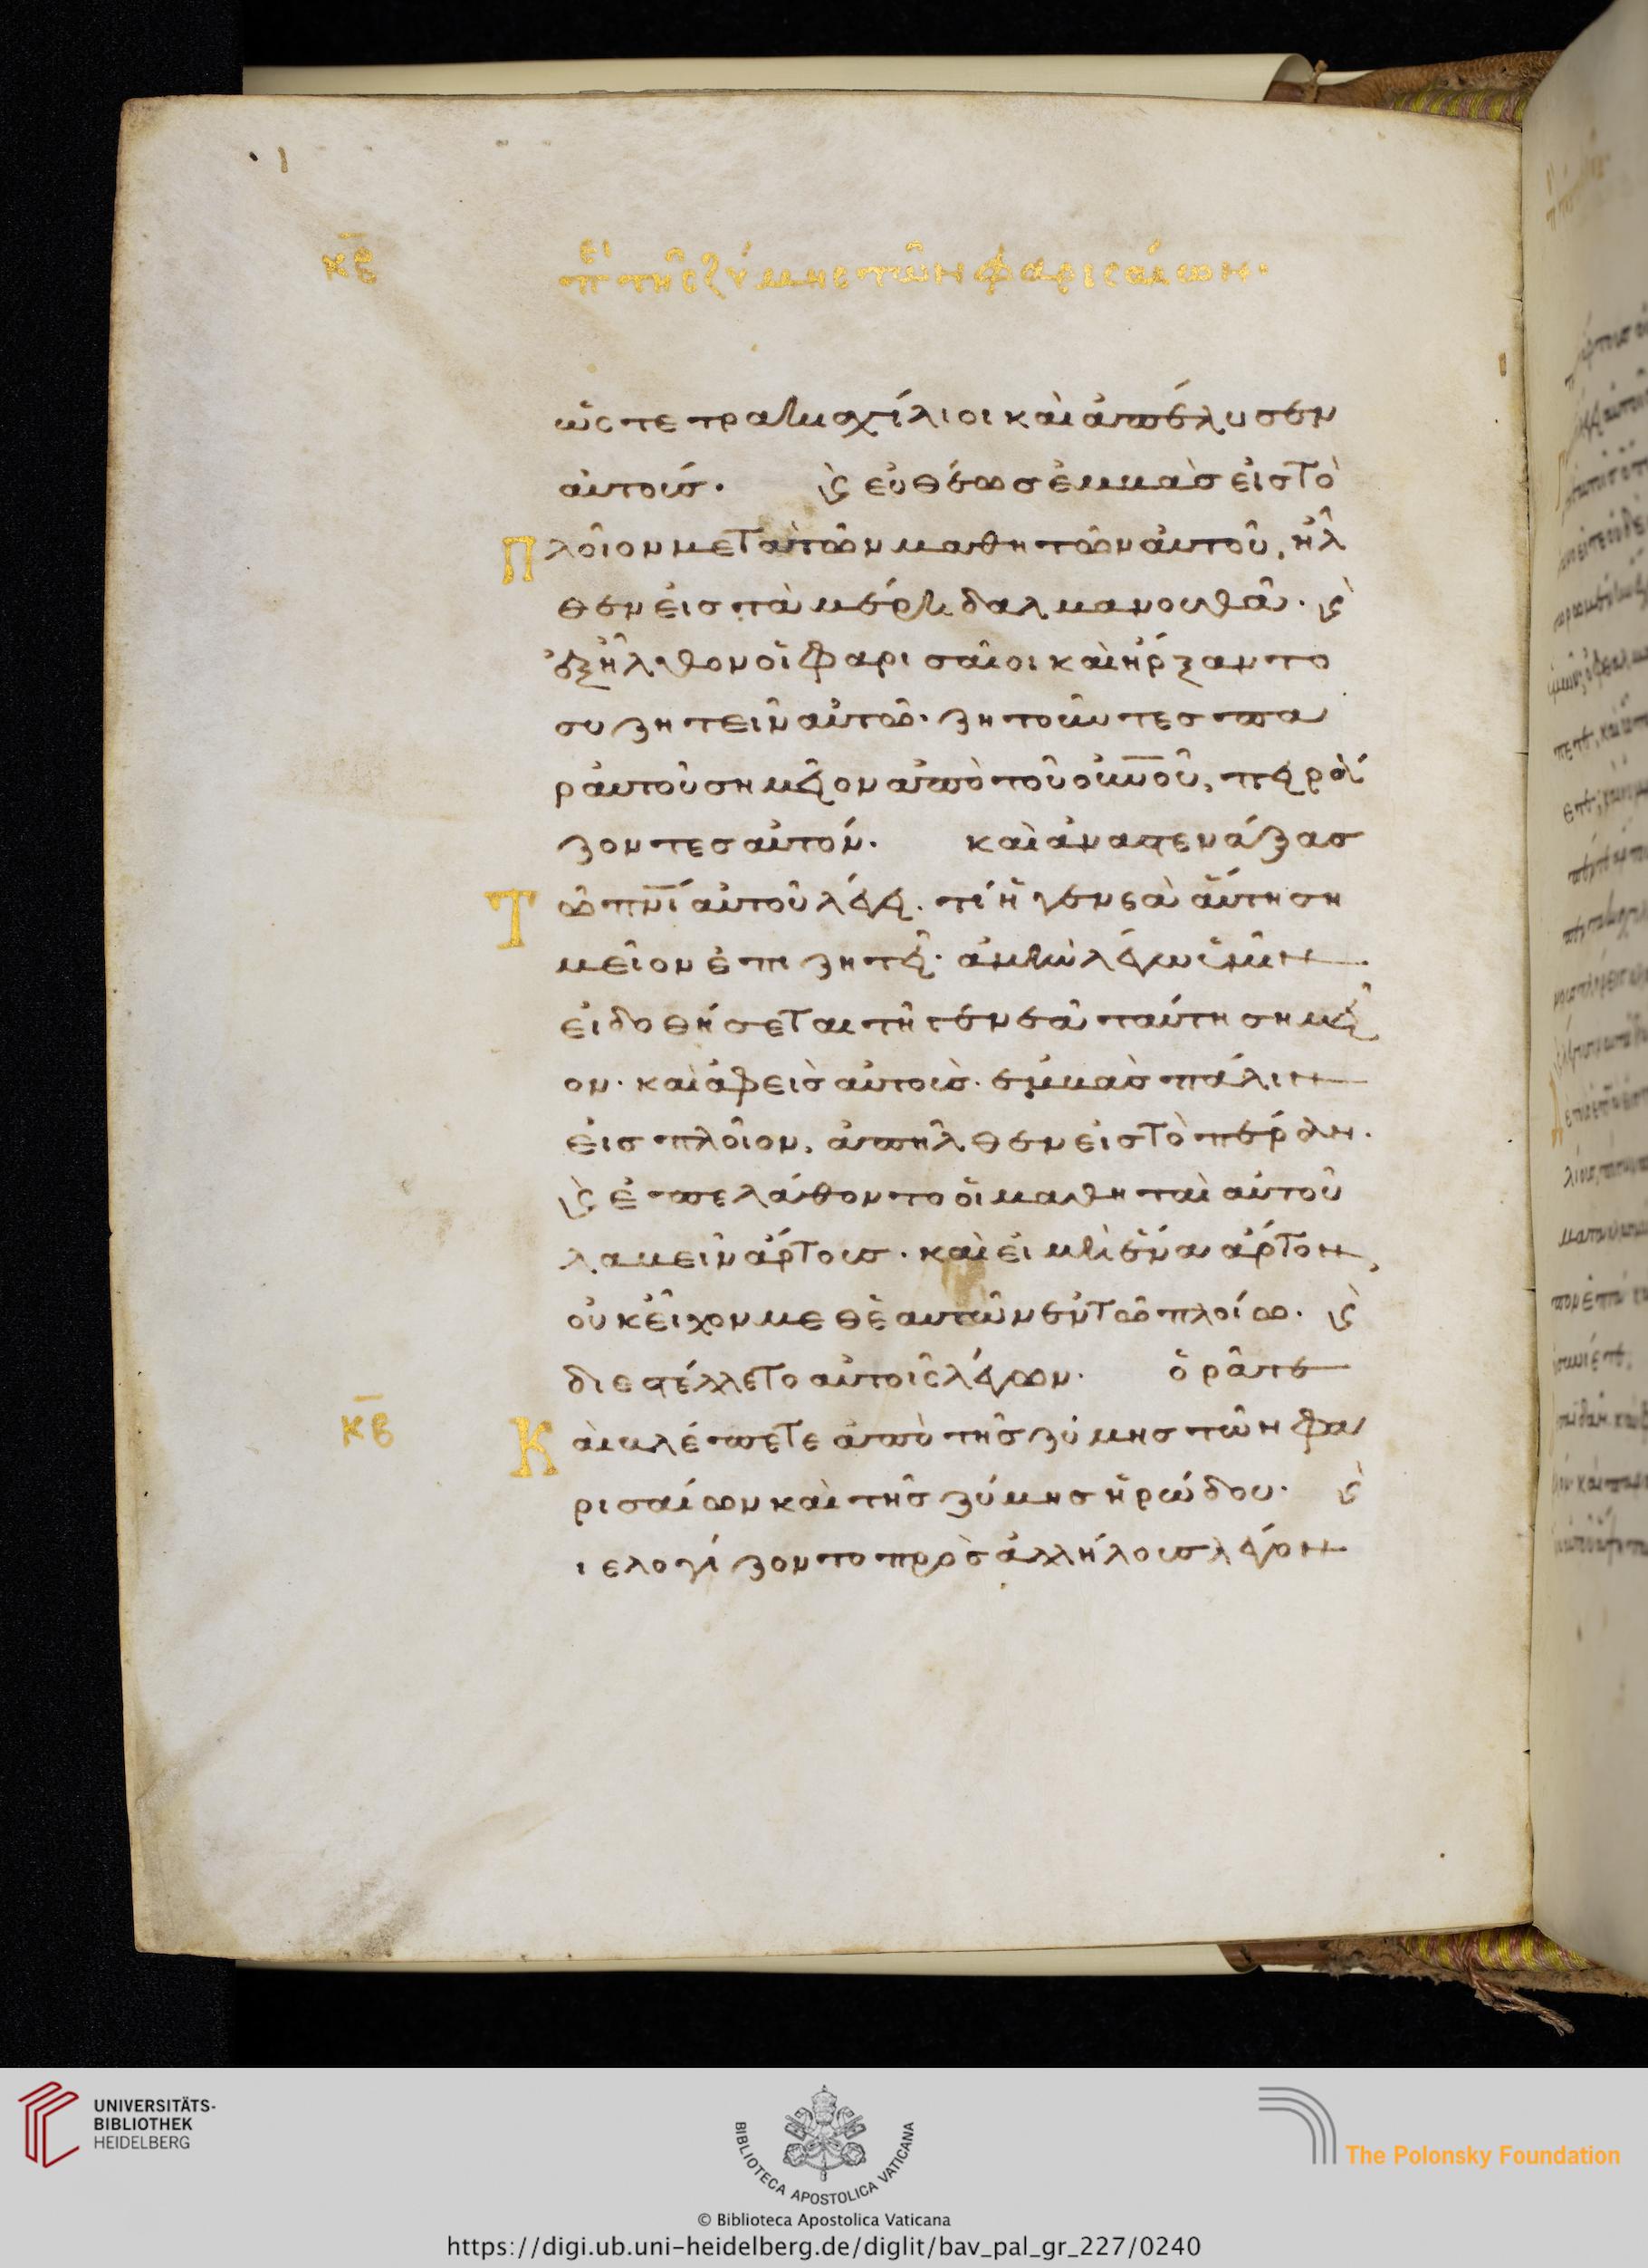 κβ πε τῆς ζύμης τῶν φαρισαίων·
ὡς τετρακισχίλιοι καὶ ἀπέλυσεν
αὐτούς. ϗ εὐθέωσ ἐμβὰσ εἰσ τὸ
πλοῖον μετὰ τῶν μαθητῶν αὐτοῦ, ἦλ
θεν εἰσ τὰ μέρη δαλμανουθᾶ. ϗ
ἐξῆλθον οἱ φαρισαῖοι καὶ ἤρξαντο
συζητεῖν αὐτῶ· ζητοῦντεσ πα
ρ αὐτοῦ σημεῖον ἀπὸ τοῦ οὐνοῦ, πειρά
ζοντεσ αὐτόν. καὶ ἀναστενάξασ
τῶ πνι αὐτοῦ λέγει. τί ἡ γενεὰ αὕτη ση
μεῖον ἐπιζητεῖ· ἀμὴν λέγω ὑμῖν
εἰ δοθήσεται τῆ γενεᾶ ταύτη σημεῖ
ον. καὶ ἀφεὶσ αὐτοὺσ. ἐμβὰσ πάλιν
εἰσ πλοῖον, ἀπῆλθεν εἰσ τὸ πέραν.
ϗ ἐπελάθοντο οἱ μαθηταὶ αὐτοῦ
λαβεῖν ἄρτουσ. καὶ εἰ μὴ ἕνα ἄρτον,
οὐκ εἶχον μεθ ἑαυτῶν ἐν τῶ πλοίω. ϗ
διεστέλλετο αὐτοῖς λέγων. ὁρᾶτε
κβ καὶ βλέπετε ἀπὸ τῆσ ζύμησ τῶν φα
ρισαίων καὶ τῆσ ζύμησ ἡρώδου. ϗ
ιελογίζοντο πρὸσ ἀλλήλουσ λέγον
UNIVERSITÄTS-
BIBLIOTHEK
HEIDELBERG
BIBLIOTECA APOSTOLICA VATICANA
The Polonsky Foundation
© Biblioteca Apostolica Vaticana
https://digi.ub.uni-heidelberg.de/diglit/bav_pal_gr_227/0240